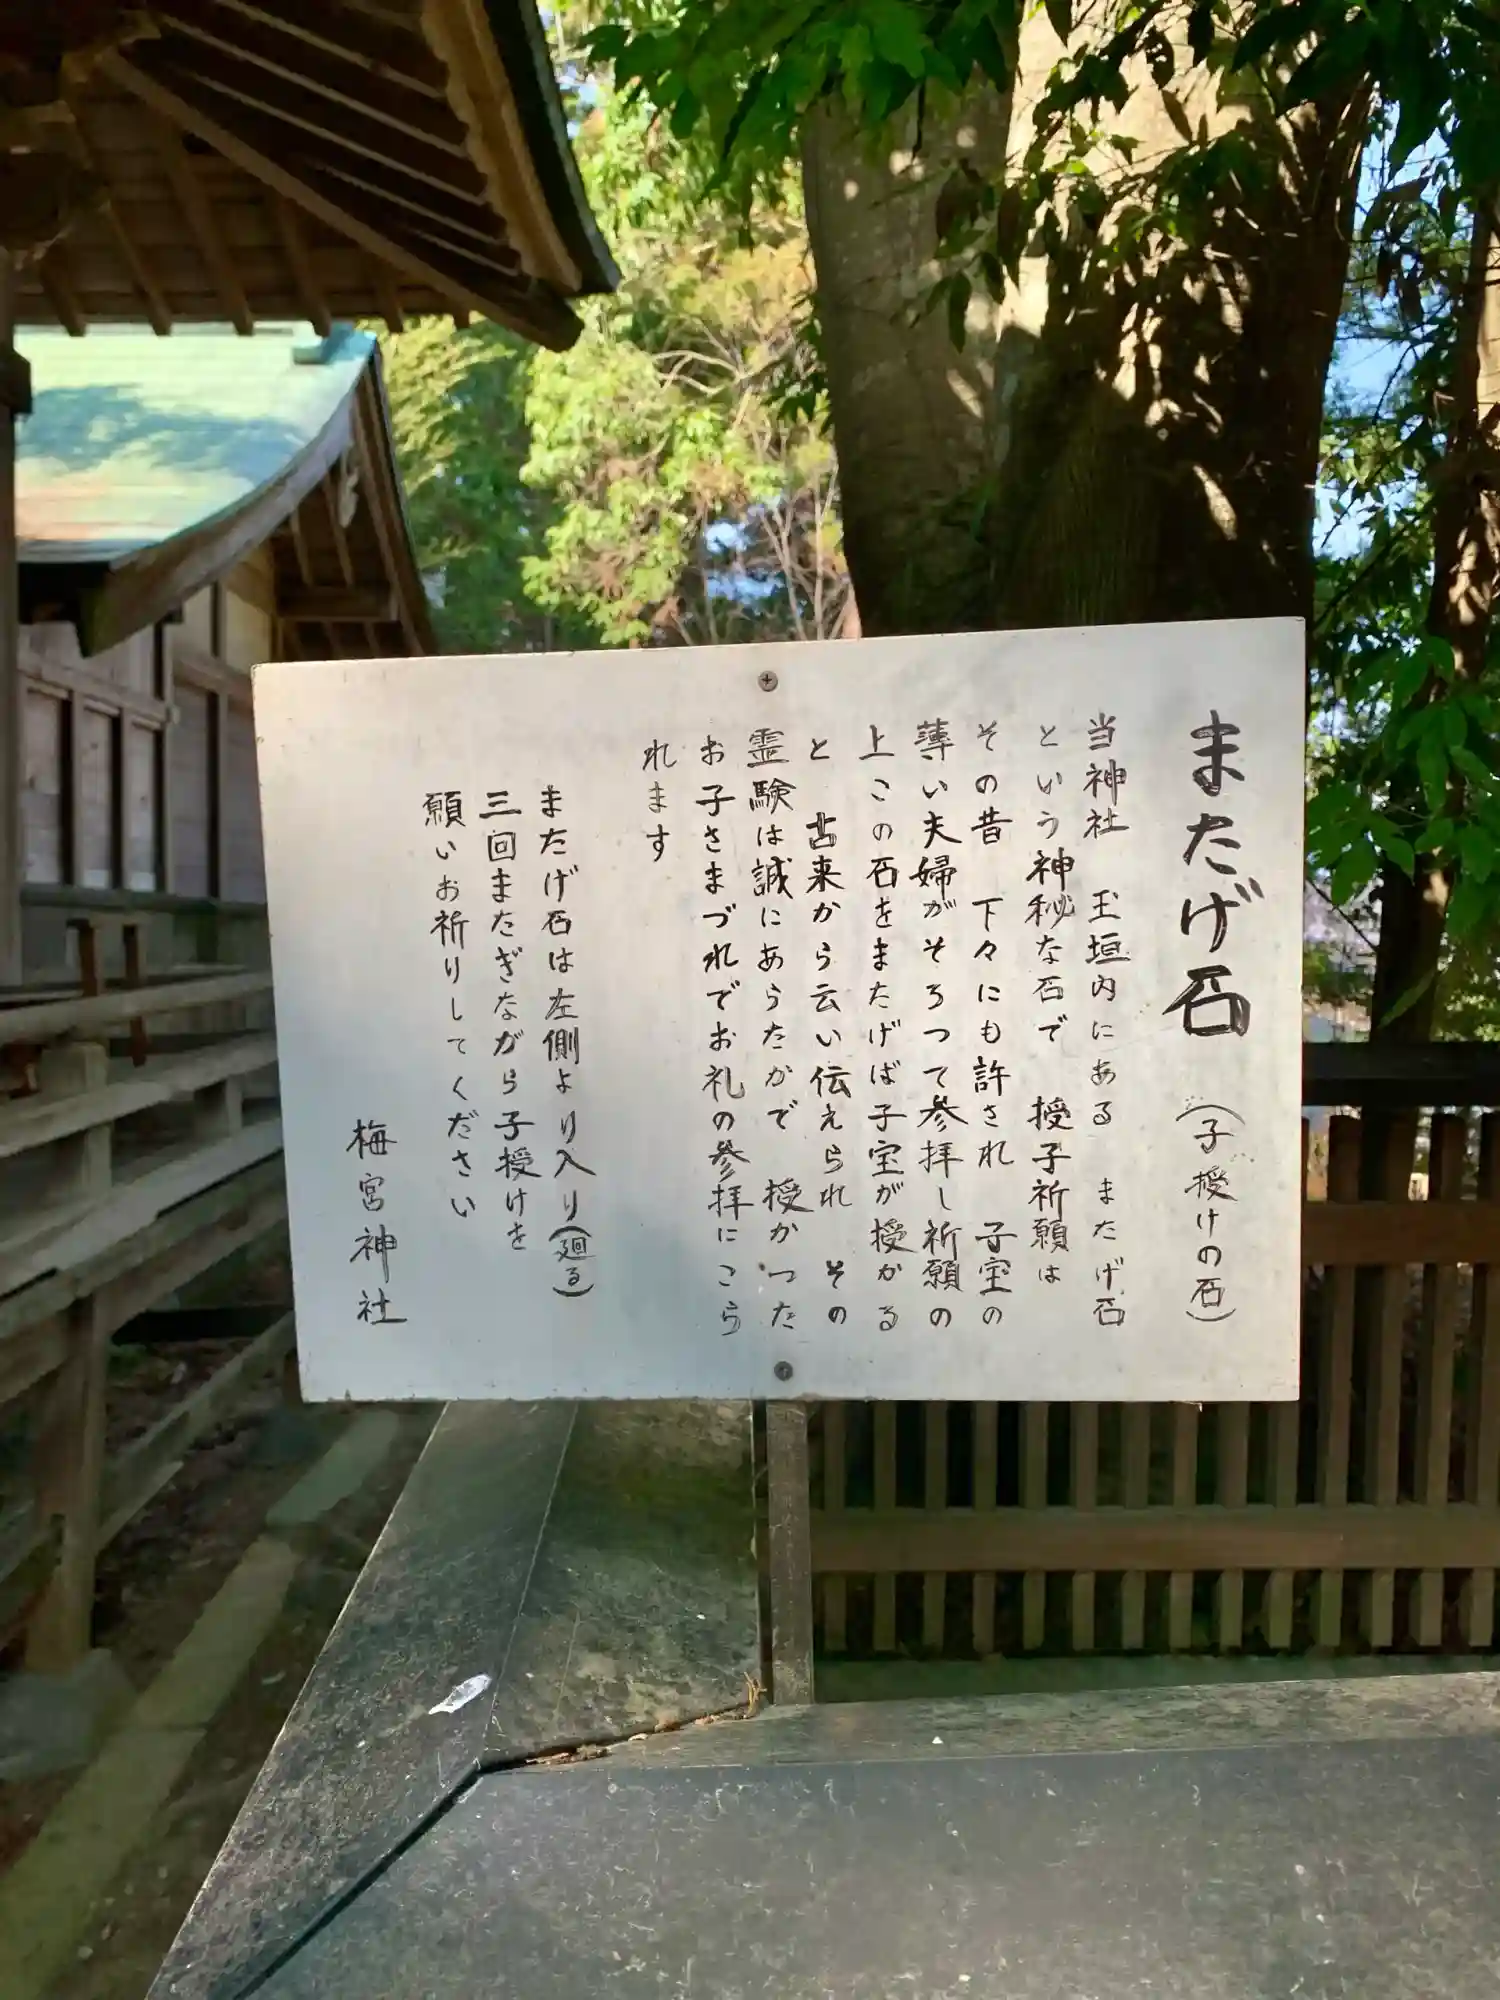 またげ石（子授けの石）
当神社　玉垣内にある　またげ石
という神秘な石で　授子祈願は
その昔　下々にも許され　子宝の
薄い夫婦がそろつて参拝し祈願の
上この石をまたげば子宝が授かる
と　古来から云い伝えられ　その
霊験は誠にあらたかで　授かった
お子さまづれでお礼の参拝にこら
れます
またげ石は左側より入り（廻る）
三回またぎながら子授けを
願いお祈りしてください
梅宮神社